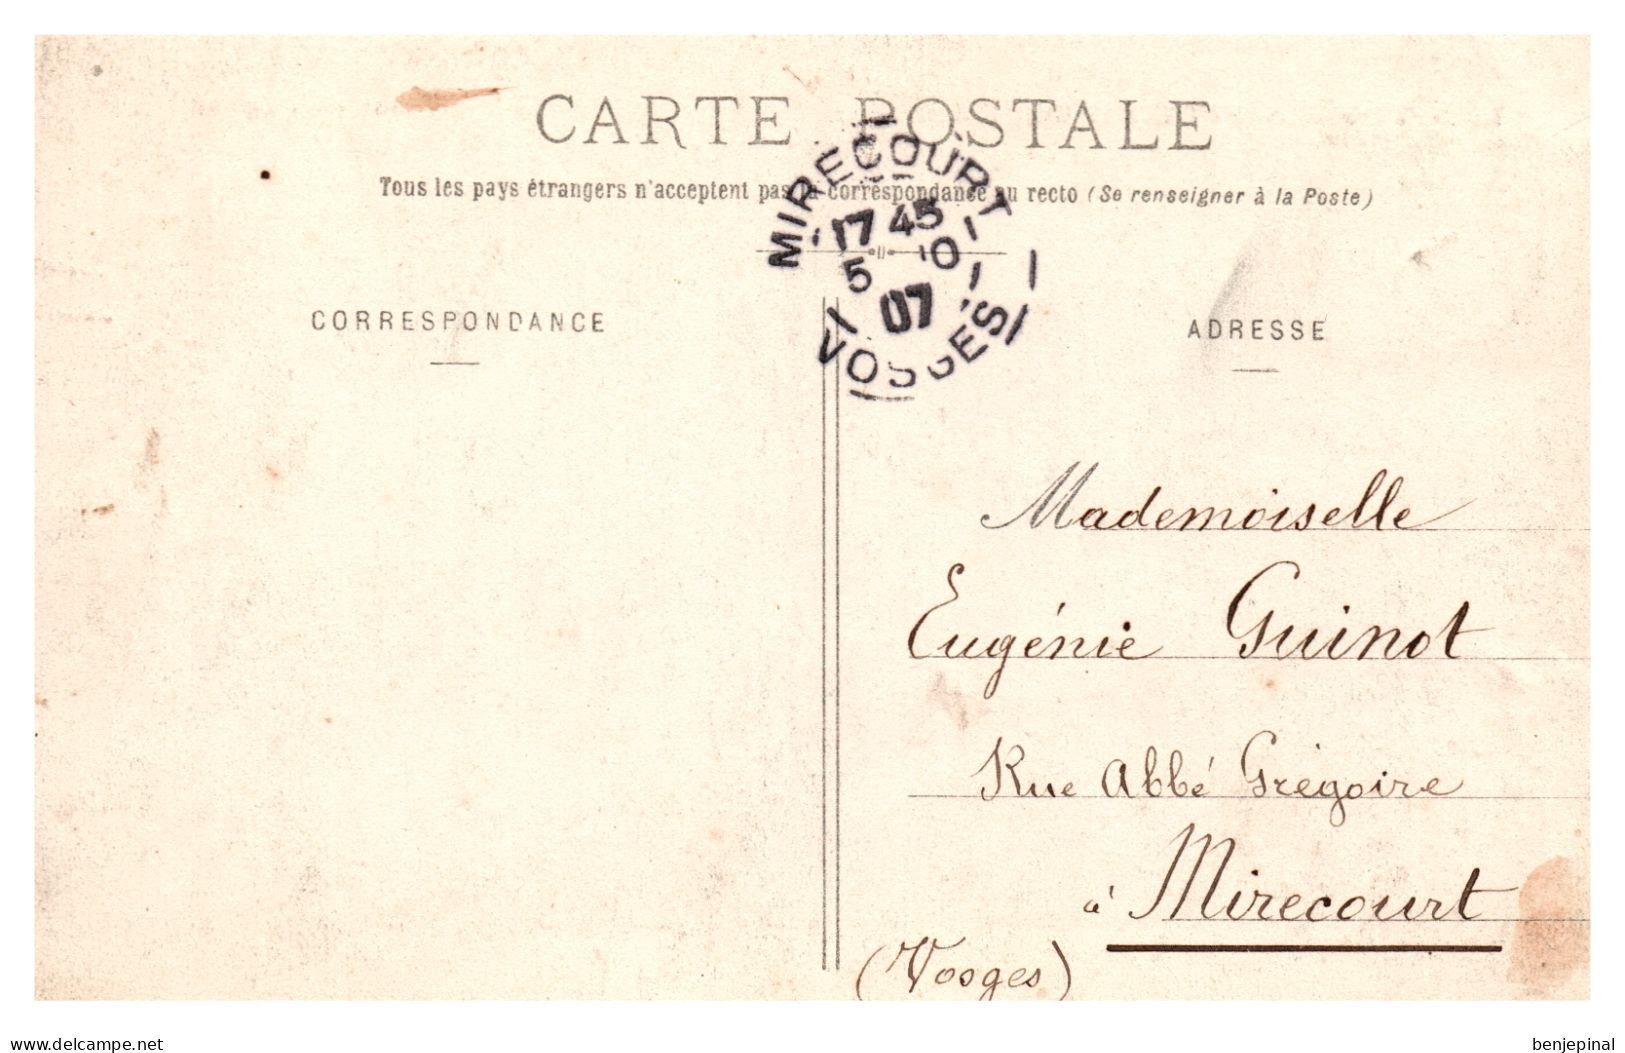 CARTE POSTALE
Tous les pays étrangers n'acceptent pas la correspondance au recto (Se renseigner à la Poste)
MIRECOURT
17 45
5
07
VOSGES
CORRESPONDANCE
ADRESSE
Mademoiselle
Eugénie Guinot
Rue Abbé Grégoire
à Mirecourt
(Vosges)
delcampe.net
benjepinal